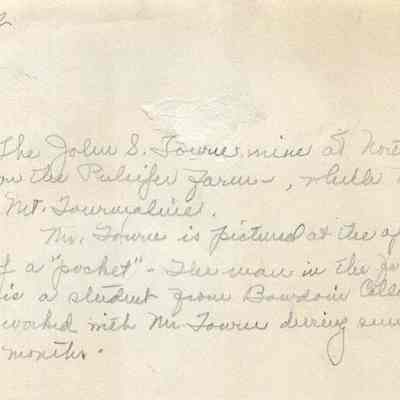 The John S. Towne mine at Nor
on the Pulsifer farm -, which
Mt. Tourmaline.
Mr. Towne is pictured at the op
of a "pocket" - The man in the fo
is a student from Bowdoin Coll
worked with Mr Towne during sum
months.